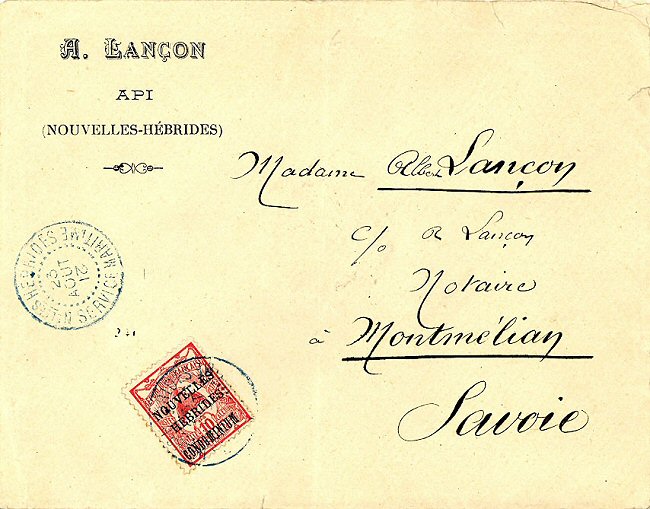 A. LANÇON
API
(NOUVELLES-HÉBRIDES)
Madame Albert Lançon
c/o R Lançon
Notaire
à Montmélian
Savoie
SERVICE MARITIME
26
AOUT
12
NOUVELLES
HÉBRIDES
10
CONDOMINIUM